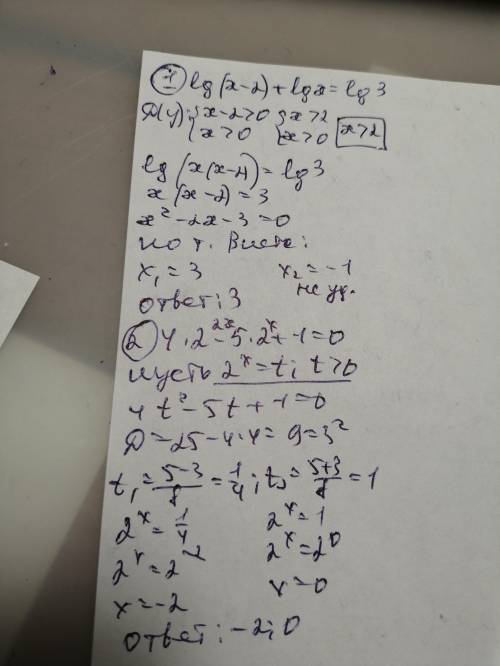 ① lg(x-2)+lgx=lg3
D(y): {x-2>0 {x>2
{x>0 {x>0 x>2
lg(x(x-2))=lg3
x(x-2)=3
x²-2x-3=0
по т. Виета:
x₁=3 x₂=-1
не уд.
ответ: 3
② 4·2²ˣ-5·2ˣ+1=0
пусть 2ˣ=t; t>0
4t²-5t+1=0
D=25-4·4=9=3²
t₁=(5-3)/8=1/4; t₂=(5+3)/8=1
2ˣ=1/4 2ˣ=1
2ˣ=2⁻² 2ˣ=2⁰
x=-2 x=0
ответ: -2; 0